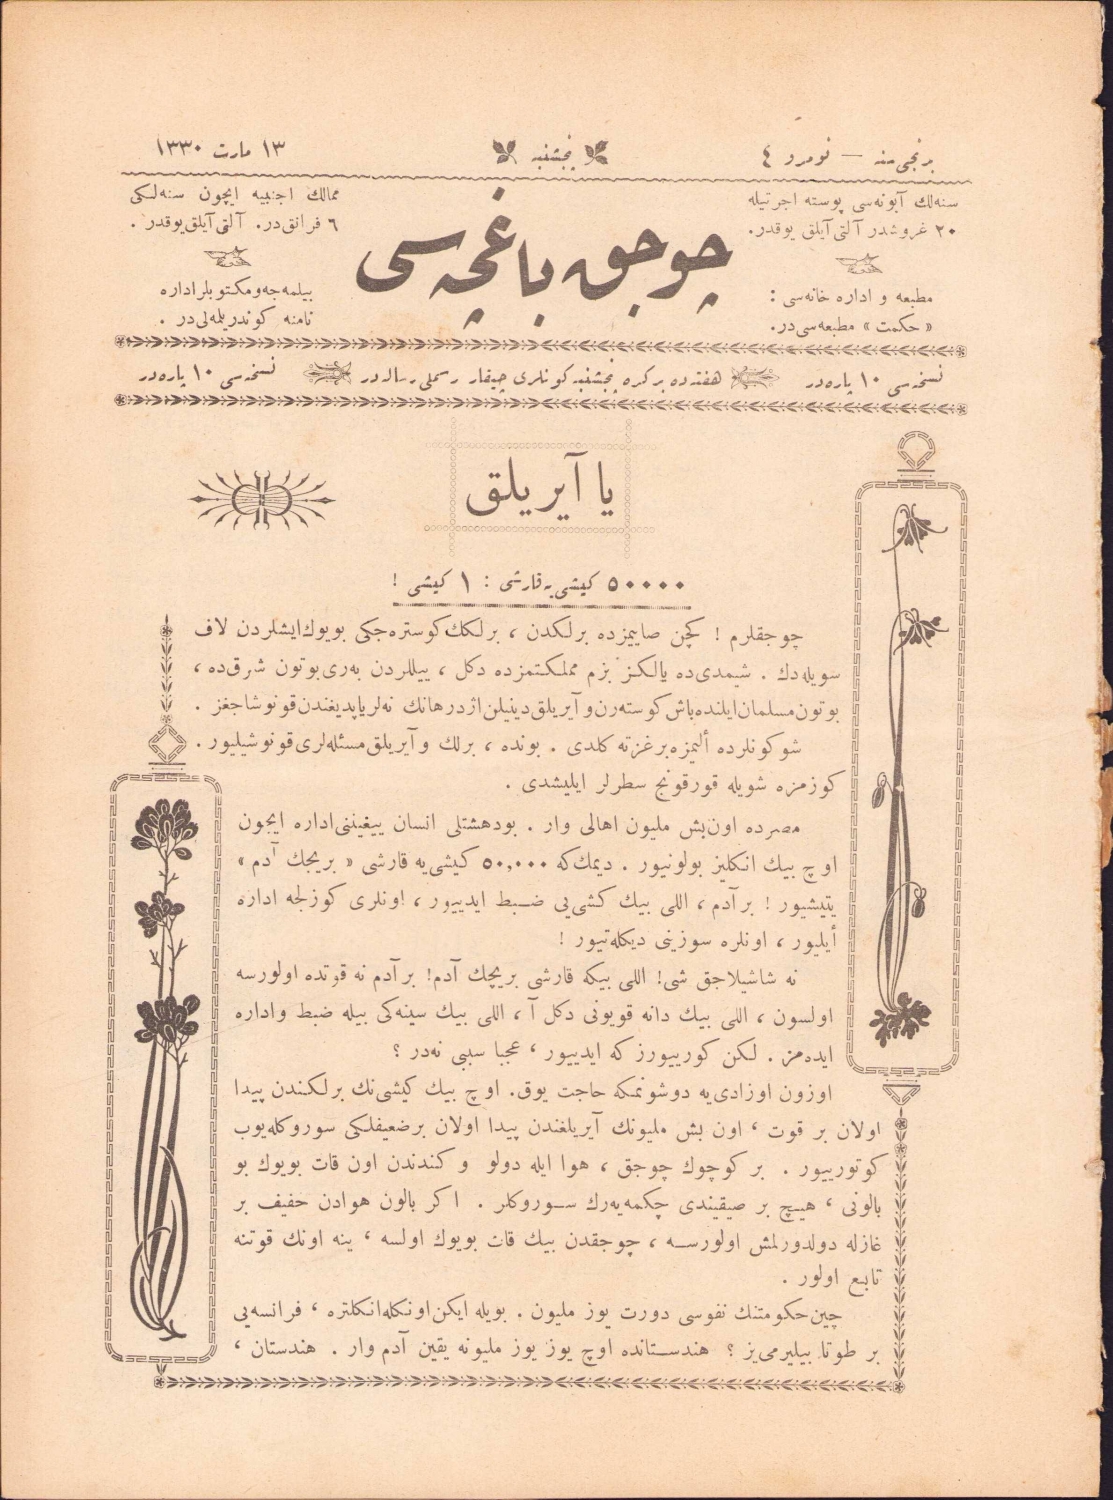 برنجی سنه — نومرو ٤
پنجشنبه
١٣ مارت ١٣٣٠
سنه‌لك آبونه‌سی پوسته اجرتیله
٢٠ غروشدر آلتی آیلق یوقدر.
مطبعه و اداره خانه‌سی :
« حکمت » مطبعه‌سی‌در.
چوجق باغچه‌سی
ممالك اجنبیه ایچون سنه‌لکی
٦ فرانق‌در. آلتی آیلق یوقدر .
بیلمه‌جه و مکتوبلر اداره
نامنه کوندریلمه‌لی‌در .
نسخه‌سی ١٠ پاره‌در
هفته‌ده بر کره پنجشنبه کونلری چیقار رسملی رساله‌در
نسخه‌سی ١٠ پاره‌در
یا آیریلق
٥٠٠٠٠ کیشی‌یه قارشی : ١ کیشی !
چوجقلرم ! کچن صاییمزده برلکدن ، برلکك کوستره‌جکی بویوك ایشلردن لاف
سویله‌دك . شیمدی‌ده یالکز بزم مملکتمزده دکل ، ییللردن به‌ری بوتون شرق‌ده ،
بوتون مسلمان ایلنده باش کوسته‌رن و آیریلق دینیلن اژدرهانك نه‌لر یاپدیغندن قونوشاجغز .
شو کونلرده ألیمزه بر غزته کلدی . بونده ، برلك و آیریلق مسئله‌لری قونوشیلیور .
کوزمزه شویله قورقونج سطرلر ایلیشدی .
مصرده اون‌بش ملیون اهالی وار . بو دهشتلی انسان ییغیننی اداره ایچون
اوچ بیك انکلیز بولونیور . دیمك‌که ٥٠,٠٠٠ کیشی‌یه قارشی « بریجك آدم »
یتیشیور ! بر آدم ، اللی بیك کشی‌یی ضبط ایدییور ، اونلری کوزلجه اداره
أیلیور ، اونلره سوزینی دیکله‌تیور !
نه شاشیلاجق شی! اللی بیکه قارشی بریجك آدم! بر آدم نه قوتده اولورسه
اولسون ، اللی بیك دانه قویونی دکل آ ، اللی بیك سینه‌کی بیله ضبط و اداره
ایده‌مز . لکن کورییورز که ایدییور ، عجبا سببی نه‌در ؟
اوزون اوزادی‌یه دوشونمکه حاجت یوق. اوچ بیك کیشی‌نك برلکندن پیدا
اولان بر قوت ، اون بش ملیونك آیریلغندن پیدا اولان بر ضعیفلکی سوروکله‌یوب
کوتورییور . بر کوچوك چوجق ، هوا ایله دولو و کندندن اون قات بویوك بو
بالونی ، هیچ بر صیقیندی چکمه‌یه‌رك سوروکلر . اکر بالون هوادن خفیف بر
غازله دولدورلمش اولورسه ، چوجقدن بیك قات بویوك اولسه ، ینه اونك قوتنه
تابع اولور .
چین حکومتنك نفوسی دورت یوز ملیون . بویله ایکن اونکله انکلتره ، فرانسه‌یی
بر طوتا بیلیرمی‌یز ؟ هندستانده اوچ یوز یوز ملیونه یقین آدم وار . هندستان ،